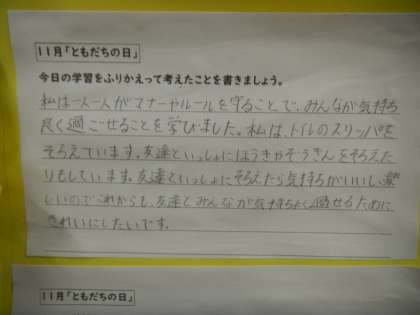 11月「ともだちの日」
今日の学習をふりかえって考えたことを書きましょう。
私は一人一人がマナーやルールを守ることで、みんなが気持ち
良く過ごせることを学びました。私は、トイレのスリッパを
そろえています。友達といっしょにほうきやぞうきんをそろえた
りもしています。友達といっしょにそろえたら気持ちがいいし楽
しいのでこれからも、友達とみんなが気持ちよく過せるために
きれいにしたいです。
11月「ともだちの日」